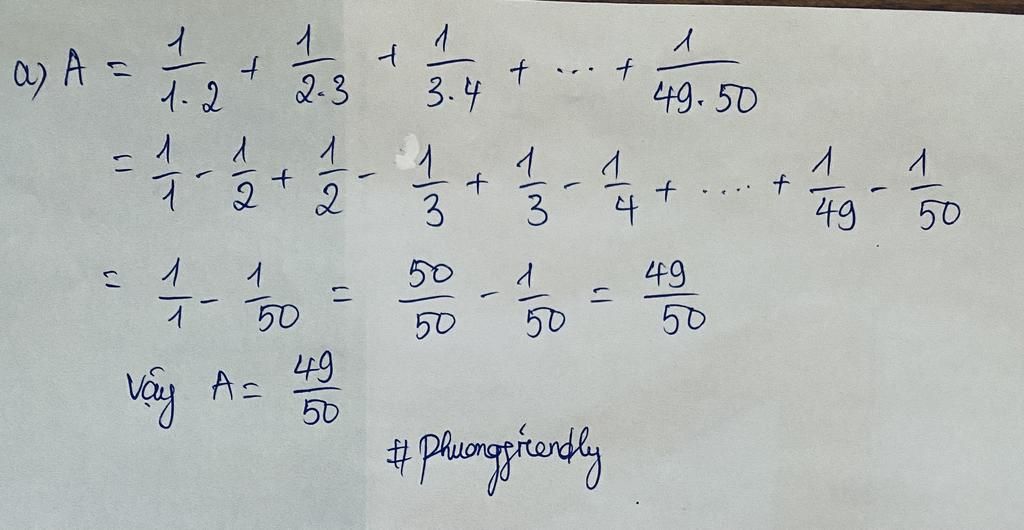 a) A = 1/1.2 + 1/2.3 + 1/3.4 + ... + 1/49.50
= 1/1 - 1/2 + 1/2 - 1/3 + 1/3 - 1/4 + .... + 1/49 - 1/50
= 1/1 - 1/50 = 50/50 - 1/50 = 49/50
Vậy A = 49/50
# phuongfriendly